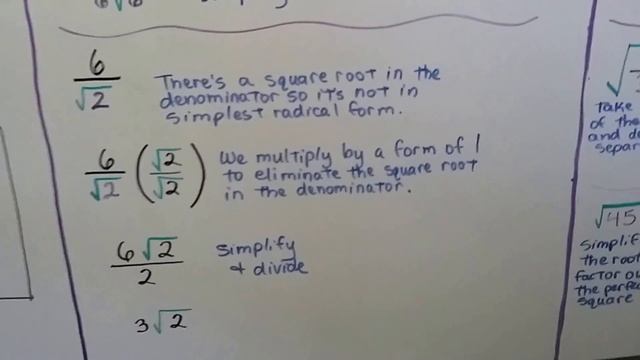 6/√2
There's a square root in the
denominator so it's not in
simplest radical form.
6/√2 (√2/√2)
We multiply by a form of 1
to eliminate the square root
in the denominator.
6√2/2
Simplify
& divide
3√2
Take
of the
and
√45
Simplif
the root
factor
the perfe
square